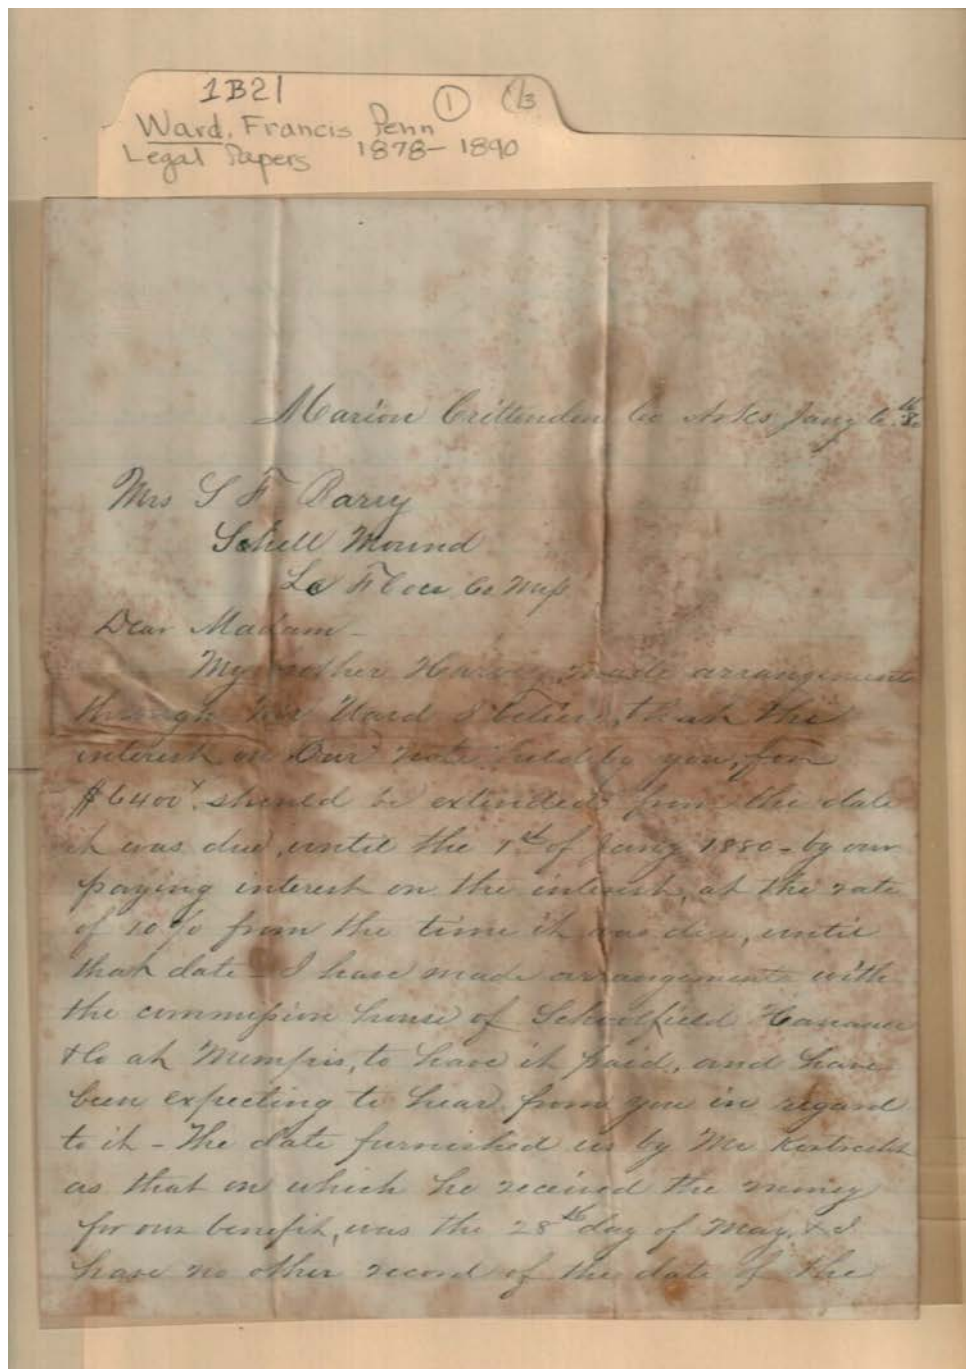 1B21
① 1/3
Ward, Francis Penn
Legal Papers 1878-1890
Marion Crittenden Co Arks Jany 6th
Mrs S F Parry
Schell Mound
Le Flore Co Miss
Dear Madam -
My brother made arrangements
through Mr Ward I believe, that the
interest on Our note held by you, for
$6400 should be extended from the date
it was due, until the 1st of Jany 1880 - by our
paying interest on the interest, at the rate
of 10% from the time it was due, until
that date - I have made arrangements with
the commission house of Schoolfield Hanauer
& Co at Memphis, to have it paid, and have
been expecting to hear from you in regard
to it - The date furnished us by Mr
as that on which he received the money
for our benefit, was the 28th day of May, & I
have no other record of the date of the